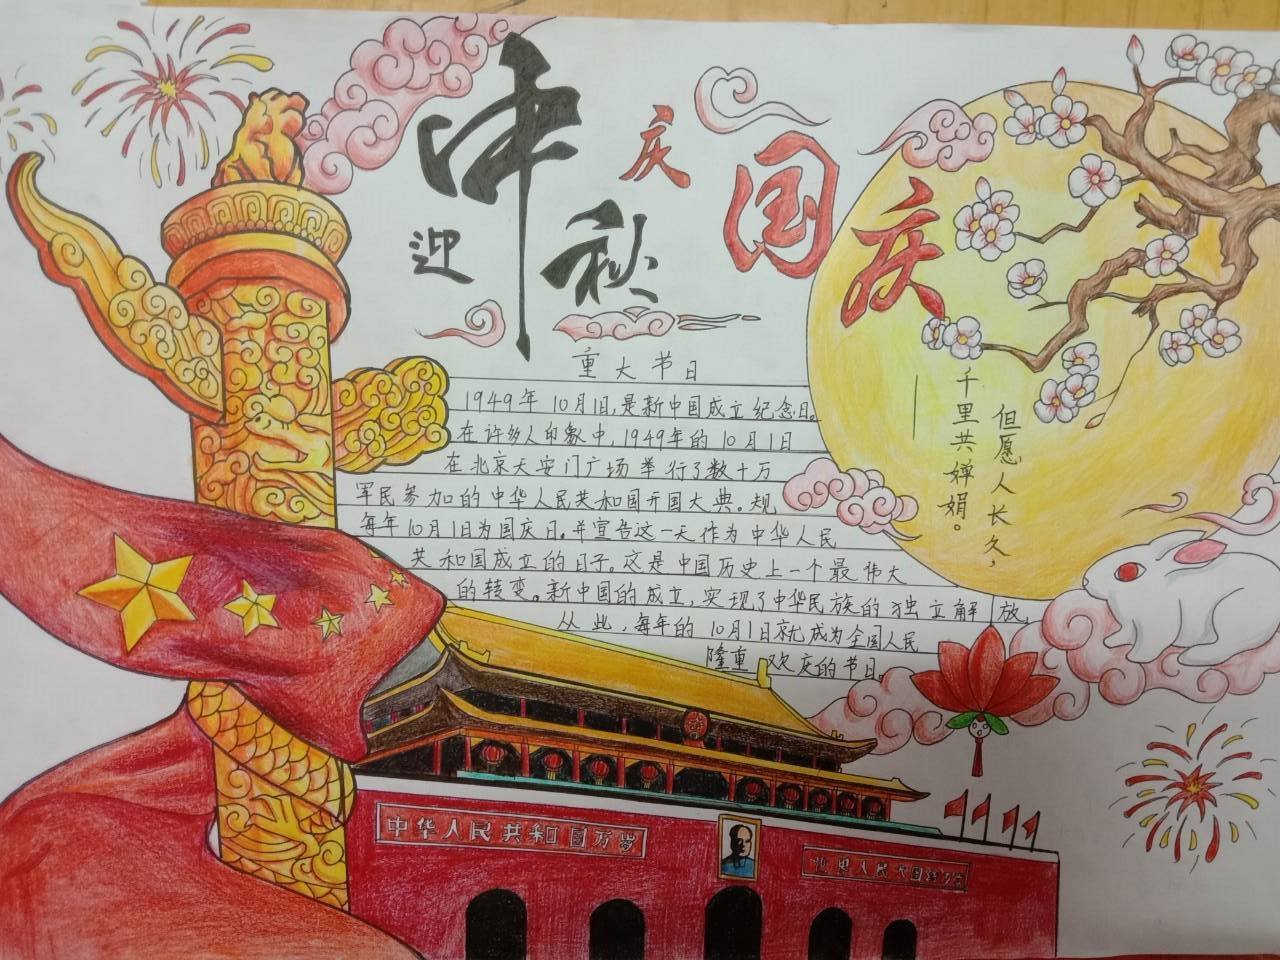 迎中秋
庆国庆
重大节日
1949年10月1日,是新中国成立纪念日。
在许多人印象中,1949年的10月1日
在北京天安门广场举行了数十万
军民参加的中华人民共和国开国大典。规
每年10月1日为国庆日。并宣告这一天作为中华人民
共和国成立的日子。这是中国历史上一个最伟大
的转变。新中国的成立,实现了中华民族的独立解放,
从此,每年的10月1日就成为全国人民
隆重欢庆的节日。
但愿人长久,
千里共婵娟。
——
中华人民共和国万岁